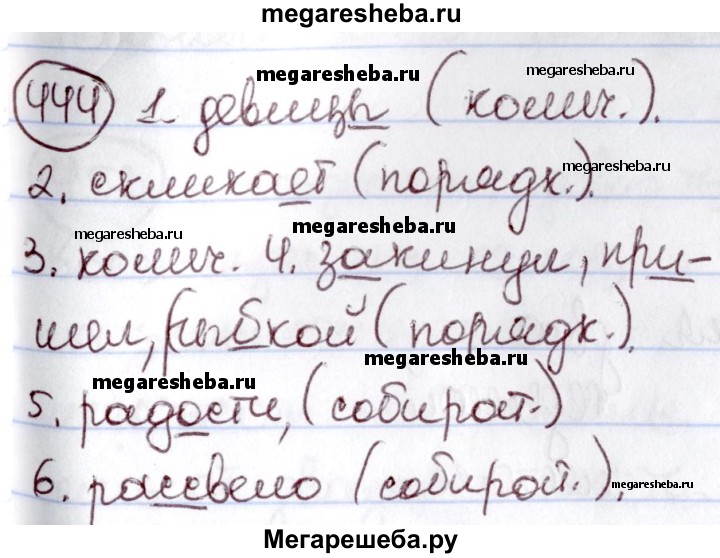 megaresheba.ru
megaresheba.ru megaresheba.ru
444 1. девицы (колич.).
megaresheba.ru
2. скликает (порядк.).
megaresheba.ru megaresheba.ru
3. колич. 4. закинул, при-
шел, рыбкой (порядк.).
megaresheba.ru
megaresheba.ru
5. радости, (собират.)
6. рассвело (собират.).
megaresheba.ru
Мегарешеба.ру